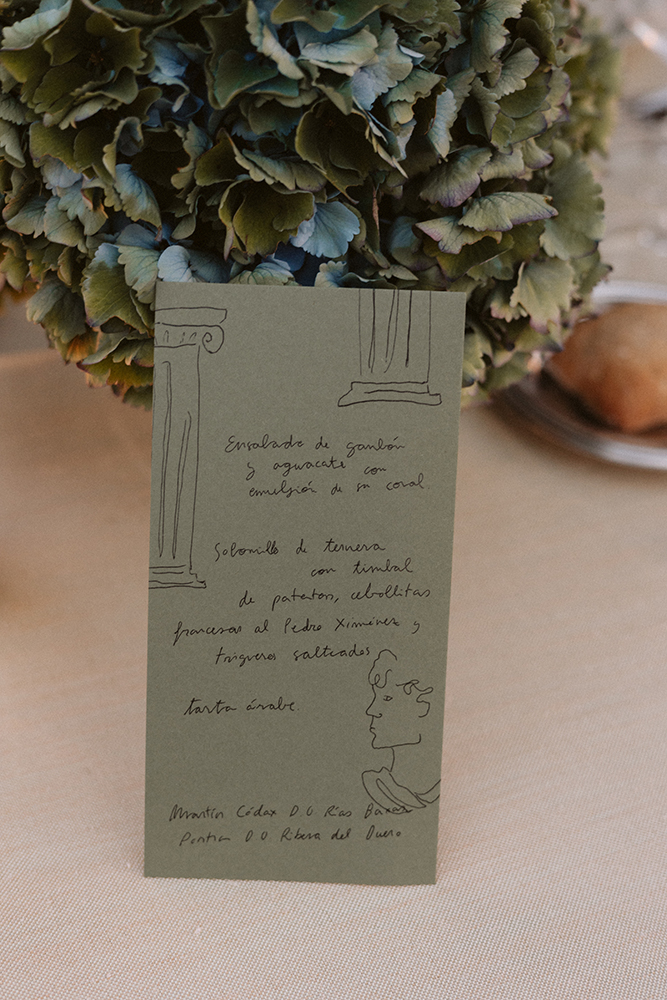 Ensalada de gambón
y aguacate con
emulsión de su coral
Solomillo de ternera
con timbal
de patatas, cebollitas
francesas al Pedro Ximénez y
trigueros salteados
tarta árabe
Martín Códax D O Rías Baixas
D O Ribera del Duero